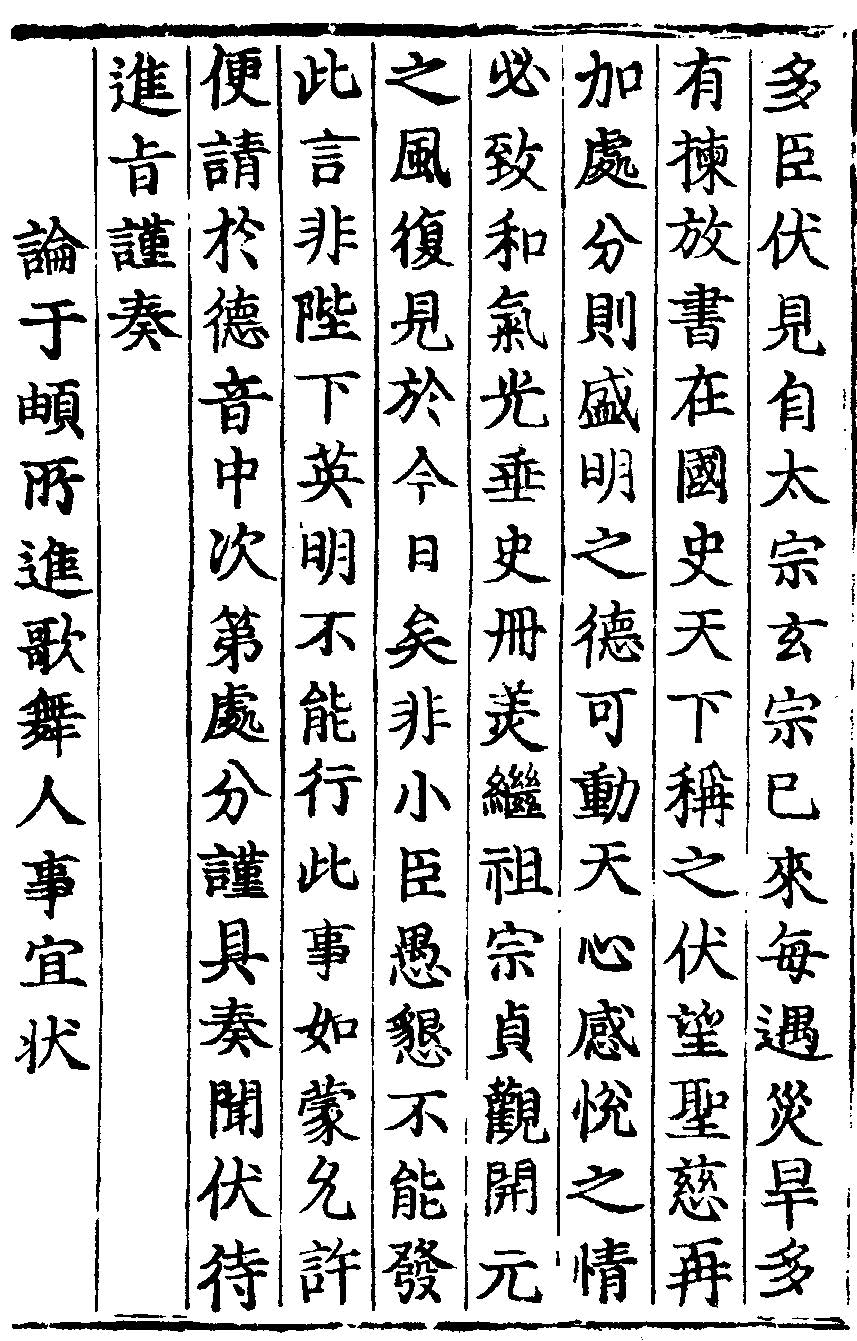 多臣伏見自太宗玄宗已來每遇災旱多
有揀放書在國史天下稱之伏望聖慈再
加處分則盛明之德可動天心感悅之情
必致和氣光垂史冊美繼祖宗貞觀開元
之風復見於今日矣非小臣愚懇不能發
此言非陛下英明不能行此事如蒙允許
便請於德音中次第處分謹具奏聞伏待
進旨謹奏
論于頔所進歌舞人事宜状